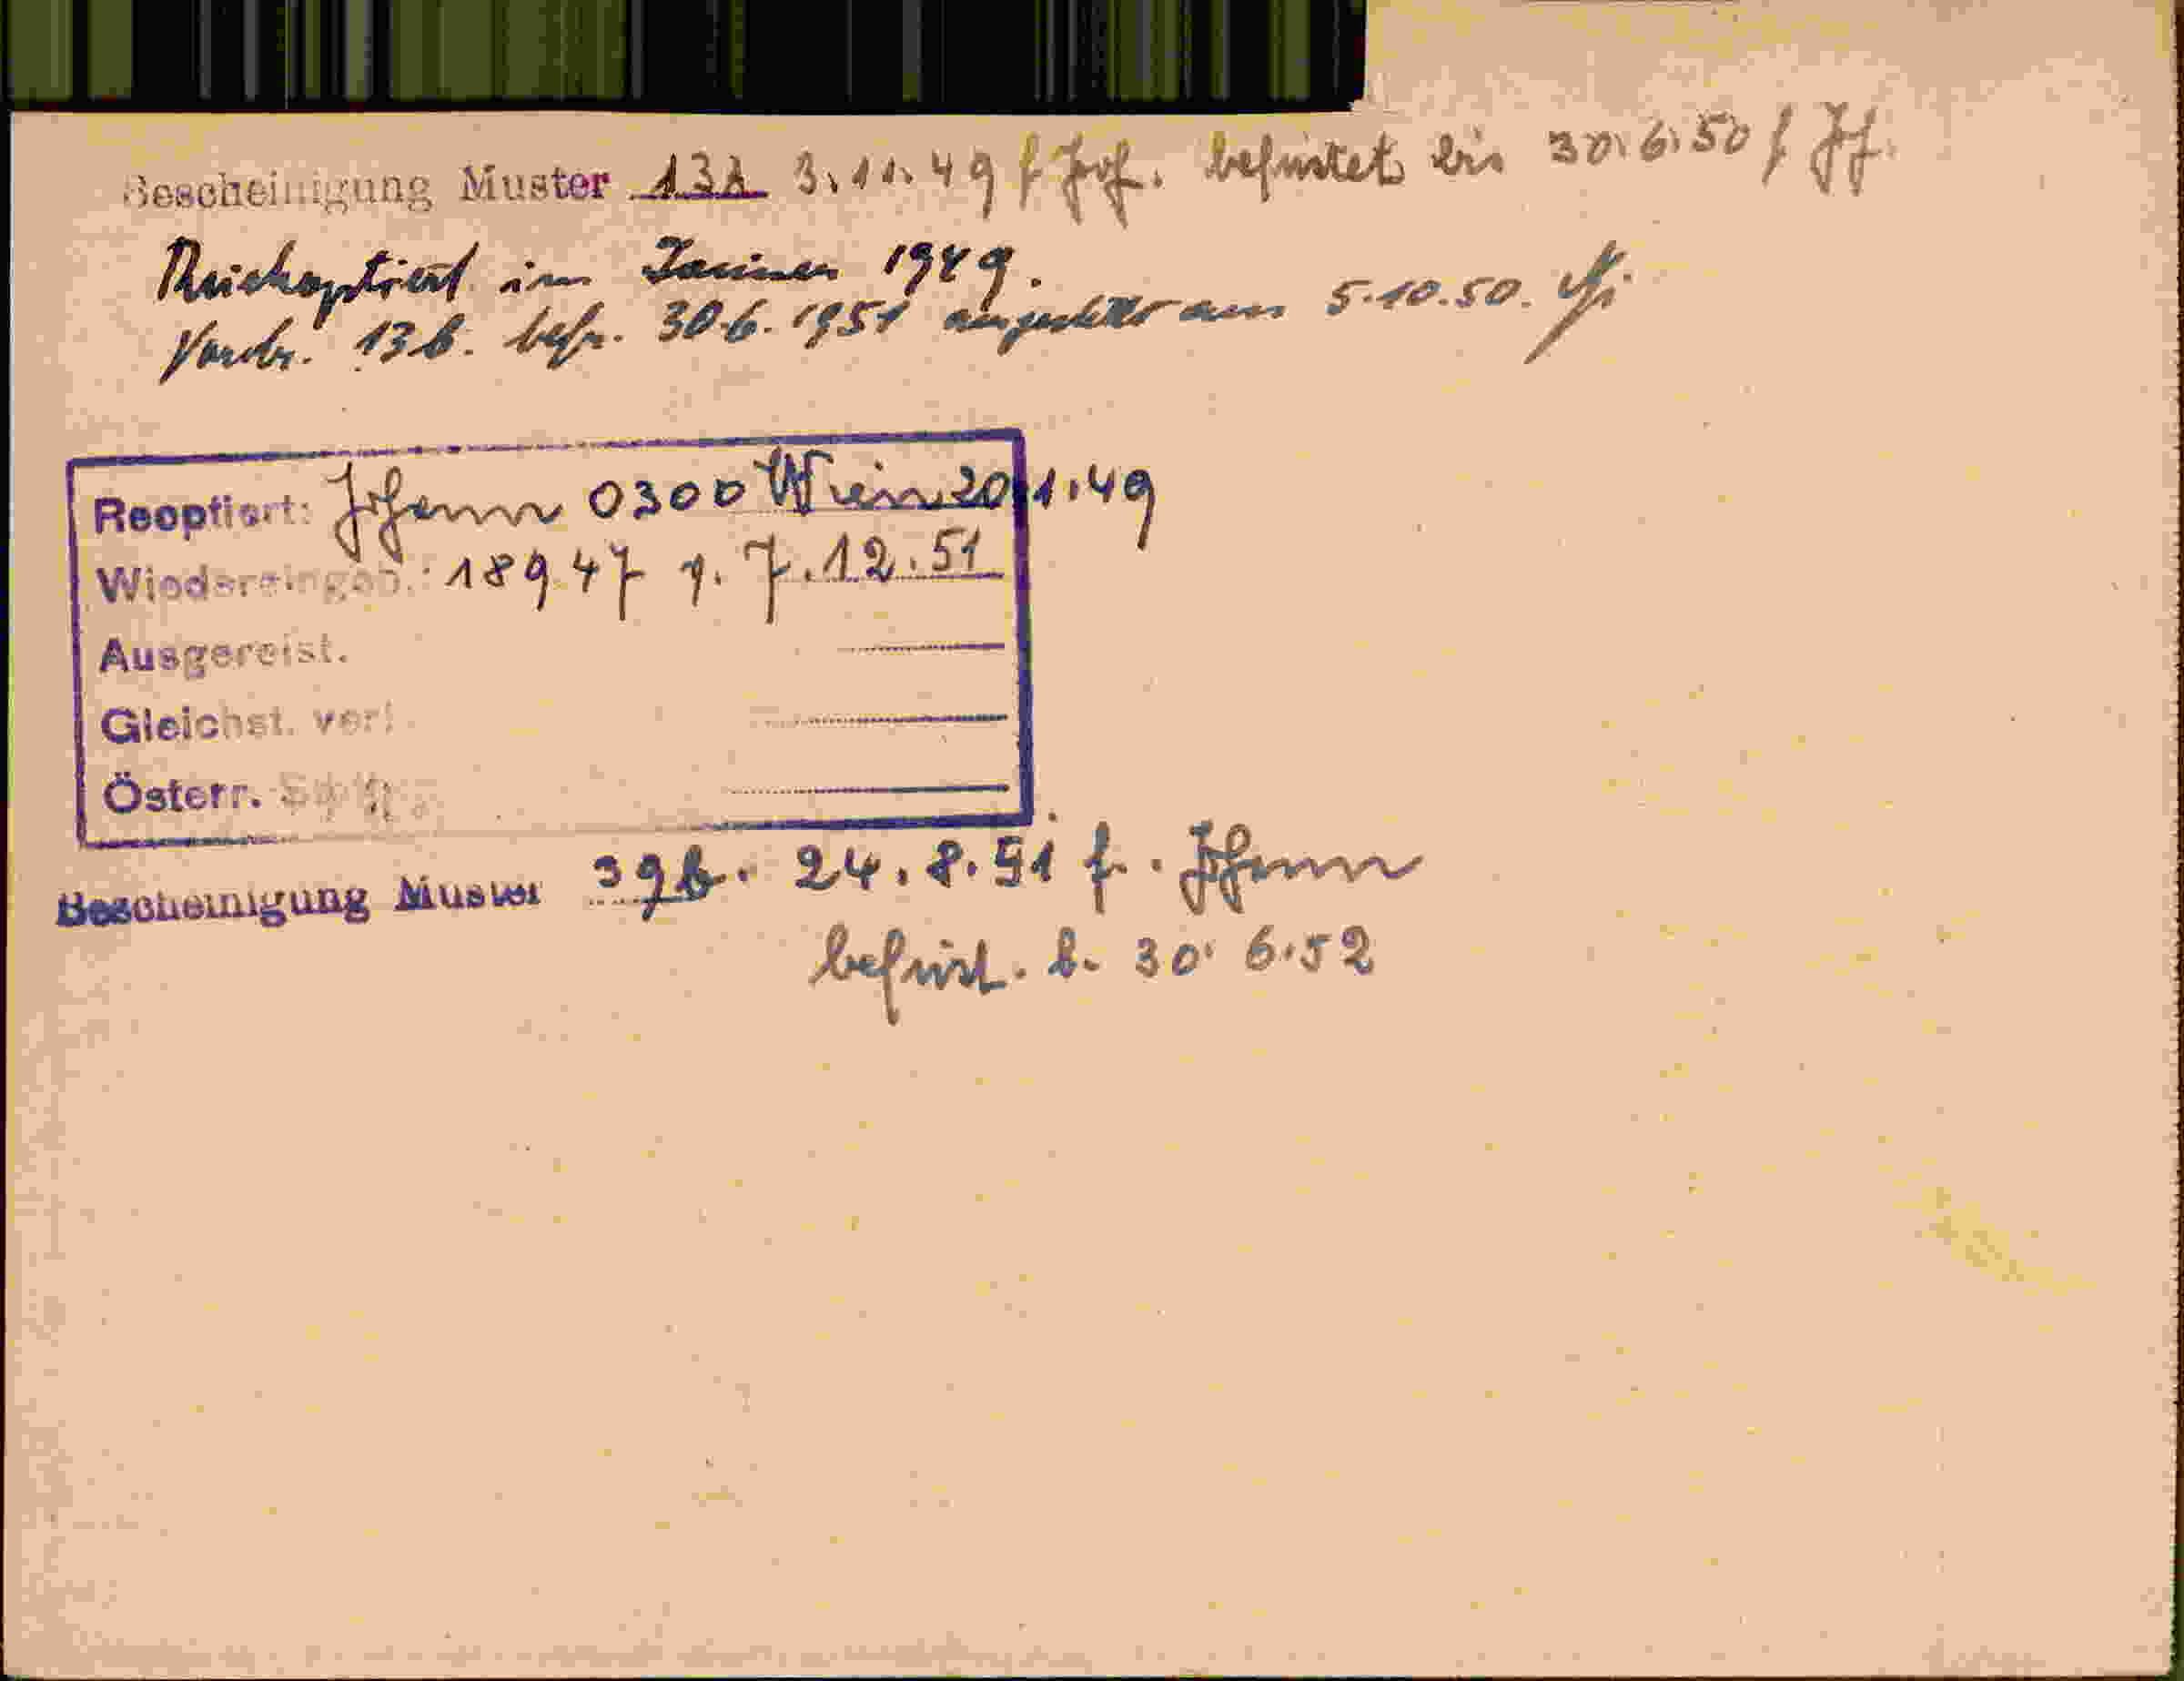 Bescheinigung Muster 13A 3.11.49 f Joh. befristet bis 30.6.50 f Jh.
Rückoptiert im Jänner 1949.
Vordr. 13b. befr. 30.6.1951 ausgestellt am 5.10.50.
Reoptiert: Johann 0300 Wien 20.1.49
Wiedereingeb.: 18947 v. 7.12.51
Ausgereist.
Gleichst. verl.
Österr.
Bescheinigung Muster 39b. 24.8.51 f. Johann
befrist. b. 30.6.52